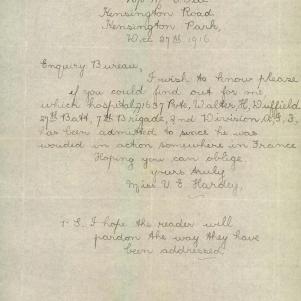 Kensington Road
Kensington Park,
Dec 27th 1916
Enquiry Bureau,
I wish to know please
if you could find out for me
which hospital 1637 Pte, Walter H, Duffield
27th Batt, 7th Brigade, 2nd Division, A. I. F.
has been admitted to since he was
wouded in action somewhere in France
Hoping you can oblige
yours truly
Miss V. E. Hardey,
P S. I hope the reader will
pardon the way they have
been addressed